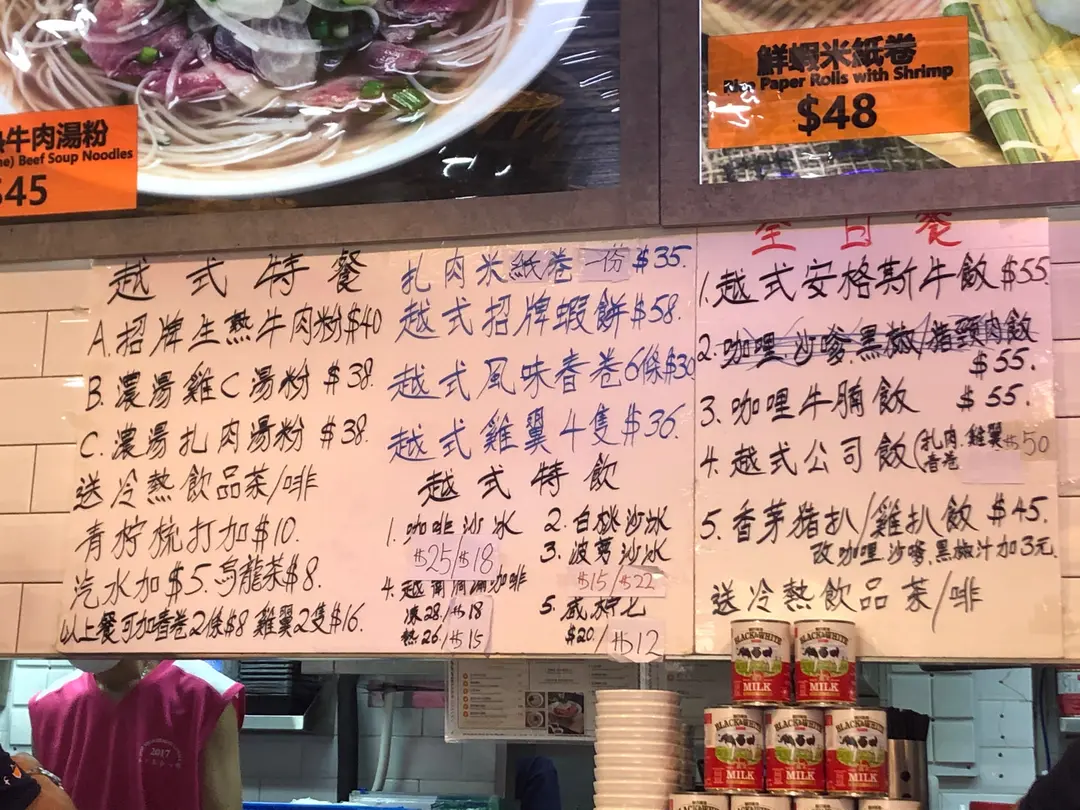 牛肉湯粉
Beef Soup Noodles
$45
鮮蝦米紙卷
Rice Paper Rolls with Shrimp
$48
越式特餐
A.招牌生熟牛肉粉$40
B.濃湯雞C湯粉 $38.
C.濃湯扎肉湯粉 $38.
送冷熱飲品茶/啡
青柠梳打加$10.
汽水加$5.烏龍茶$8.
以上餐可加春卷2條$8 雞翼2隻$16.
扎肉米紙卷 一份 $35.
越式招牌蝦餅$58.
越式風味春卷6條$30
越式雞翼4隻$36.
越式特飲
1.咖啡沙冰
$25/$18
2.白桃沙冰
3.波蘿沙冰
$15/$22
4.越 咖啡
凍28./$18
熱26./$15
5.咸柠七
$20./$12
全日餐
1.越式安格斯牛飯$55
2.咖哩.沙嗲.黑椒/猪頸肉飯
$55.
3.咖哩牛腩飯 $55.
4.越式公司飯(扎肉.雞翼 $50
春卷
5.香茅猪扒/雞扒飯 $45.
改咖哩.沙嗲.黑椒汁加3元.
送冷熱飲品茶/啡
BLACK&WHITE
MILK
BLACK&WHITE
MILK
BLACK&WHITE
MILK
BLACK&WHITE
MILK
BLACK&WHITE
MILK
2017